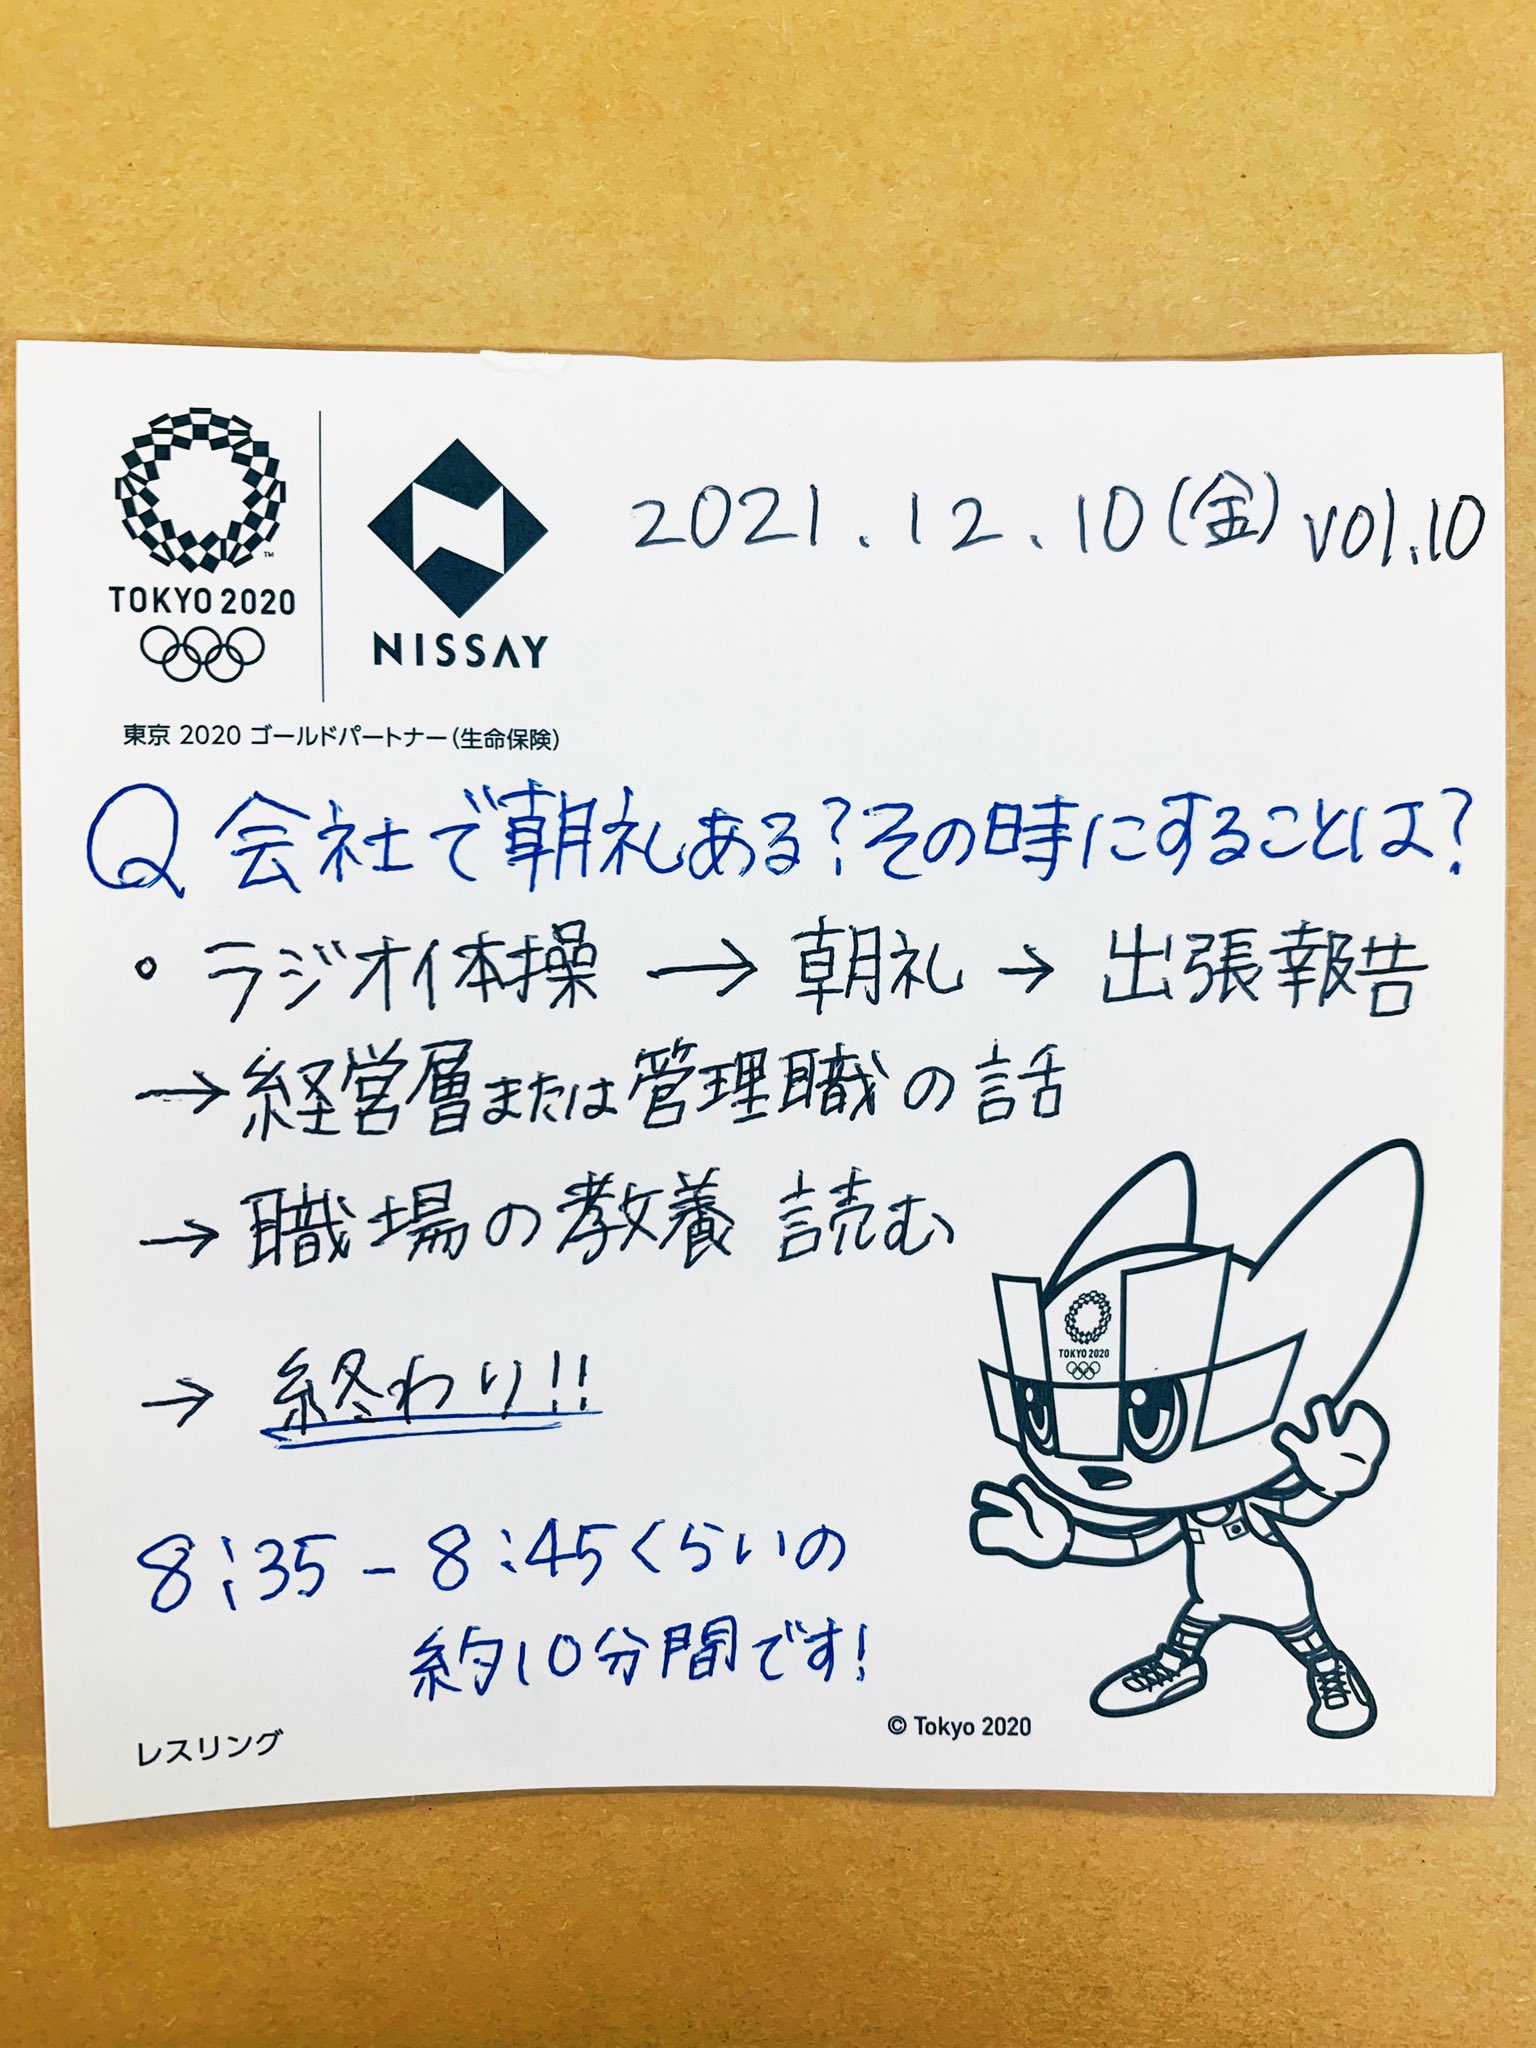 TOKYO 2020
NISSAY
東京 2020 ゴールドパートナー(生命保険)
2021.12.10(金) vol.10
Q 会社で朝礼ある?その時にすることは?
・ラジオイ体操 → 朝礼 → 出張報告
→ 経営層または管理職の話
→ 職場の教養 読む
→ 終わり!!
TOKYO 2020
8:35 - 8:45くらいの
約10分間です!
© Tokyo 2020
レスリング